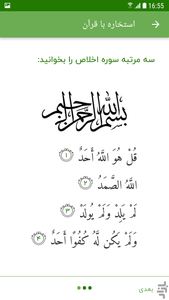 16:55
استخاره با قرآن
سه مرتبه سوره اخلاص را بخوانید:
بسم الله الرحمن الرحیم
قُلْ هُوَ اللَّهُ أَحَدٌ ۱
اللَّهُ الصَّمَدُ ۲
لَمْ يَلِدْ وَلَمْ يُولَدْ ۳
وَلَمْ يَكُن لَّهُ كُفُوًا أَحَدٌ ۴
بعدی